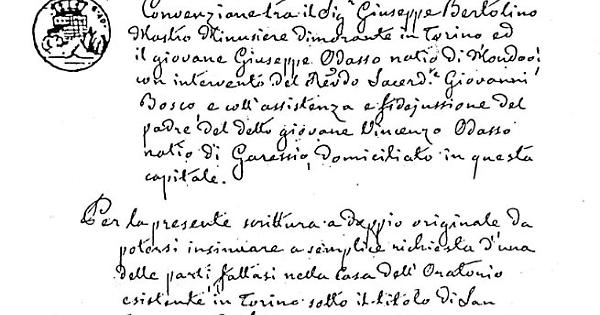 Convenzione tra il Sig.r Giuseppe Bertolino
Mastro Minusiere dimorante in Torino ed
il giovane Giuseppe Odasso natio di Mondovì
con intervento del Rev.do Sacerd.te Giovanni
Bosco e coll'assistenza e fidejussione del
padre del detto giovane Vincenzo Odasso
natio di Garessio, domiciliato in questa
capitale.
Per la presente scrittura a doppio originale da
potersi insinuare a semplice richiesta d'una
delle parti, fattasi nella Casa dell'Oratorio
esistente in Torino sotto il titolo di San